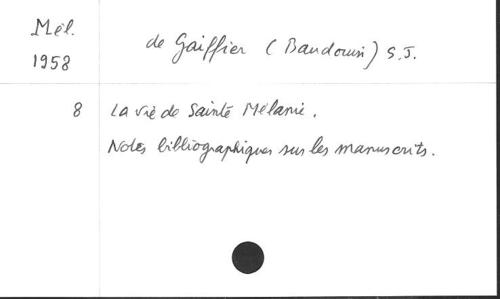 Mél.
1958
de Gaiffier (Baudouin) S.J.
8
La vie de Sainte Mélanie.
Notes bibliographiques sur les manuscrits.